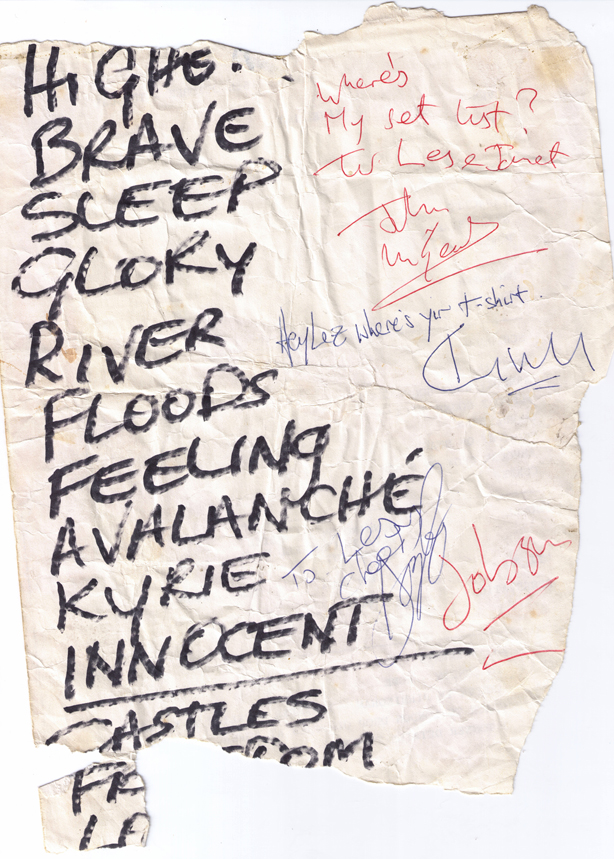 HIGHE.
BRAVE
SLEEP
GLORY
RIVER
FLOODS
FEELING
AVALANCHÉ
KYRIE
INNOCENT
CASTLES
FR
LA
Where's
My set list?
To Les & Janet
John
Hey Lez Where's yur t-shirt..
To Les
Jobson